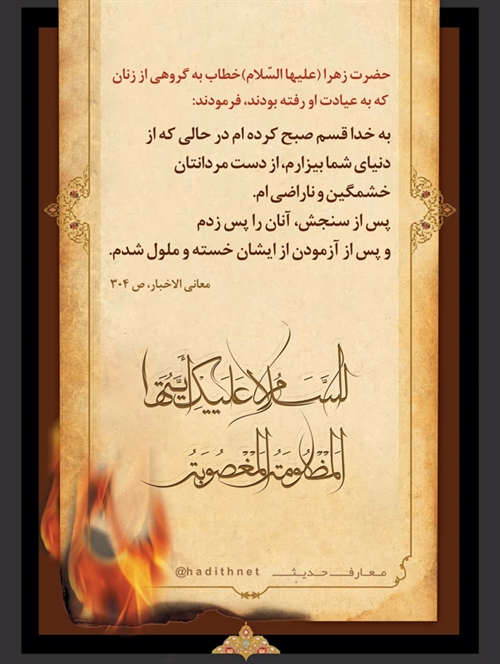 حضرت زهرا (علیها السّلام) خطاب به گروهی از زنان
که به عیادت او رفته بودند، فرمودند:
به خدا قسم صبح کرده ام در حالی که از
دنیای شما بیزارم، از دست مردانتان
خشمگین و ناراضی ام.
پس از سنجش، آنان را پس زدم
و پس از آزمودن از ایشان خسته و ملول شدم.
معانی الاخبار، ص ۳۰۴
السَّلامُ عَلَیْكِ أَیَّتُهَا
المَظْلُومَةُ المَغْصُوبَةُ
معارف حدیث @hadithnet